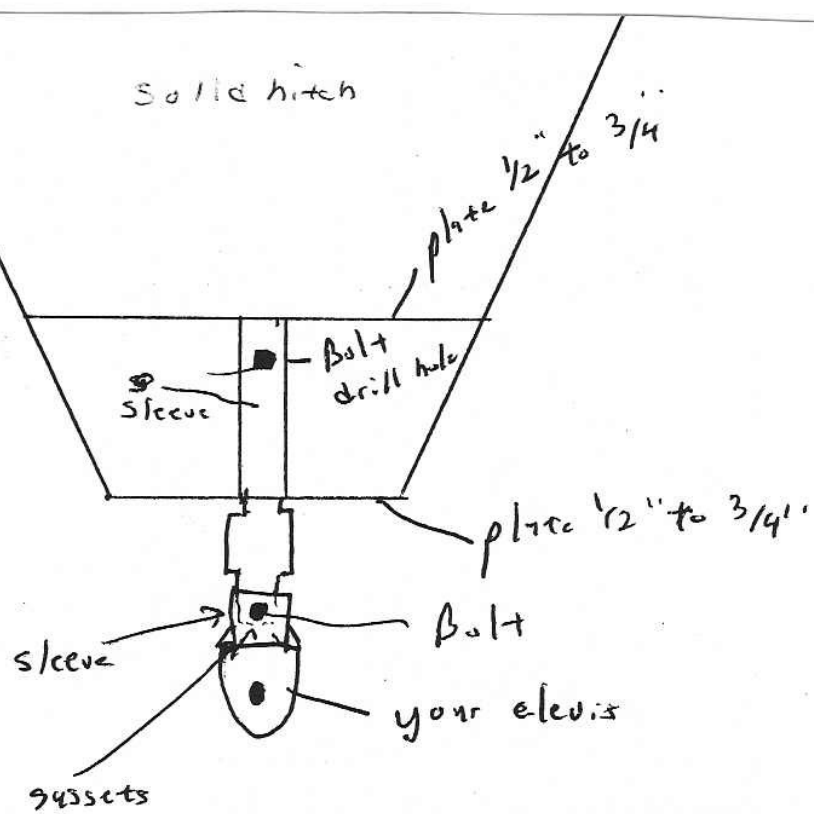 Solid hitch
plate 1/2" to 3/4"
Bolt
drill hole
sleeve
plate 1/2" to 3/4"
Bolt
sleeve
your clevis
gussets